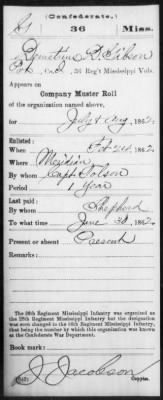 (Confederate.)
G 36 Miss.
Demetrius D. Gibson
Pvt., Co. G, 36 Reg't Mississippi Vols.
Appears on
Company Muster Roll
of the organization named above,
for July & Aug, 1862.
Enlisted:
When Feb 24, 1862.
Where Meridian
By whom Capt. Tolson
Period 1 Year
Last paid:
By whom Shepherd
To what time June 30, 1862.
Present or absent Present
Remarks:
The 36th Regiment Mississippi Infantry was organized as
the Regiment Mississippi Infantry but the designation
was soon changed to the 36th Regiment Mississippi Infantry,
that being the number by which this organization was known at
the Confederate War Department.
Book mark:
J. Jacobson
(642) Copyist.